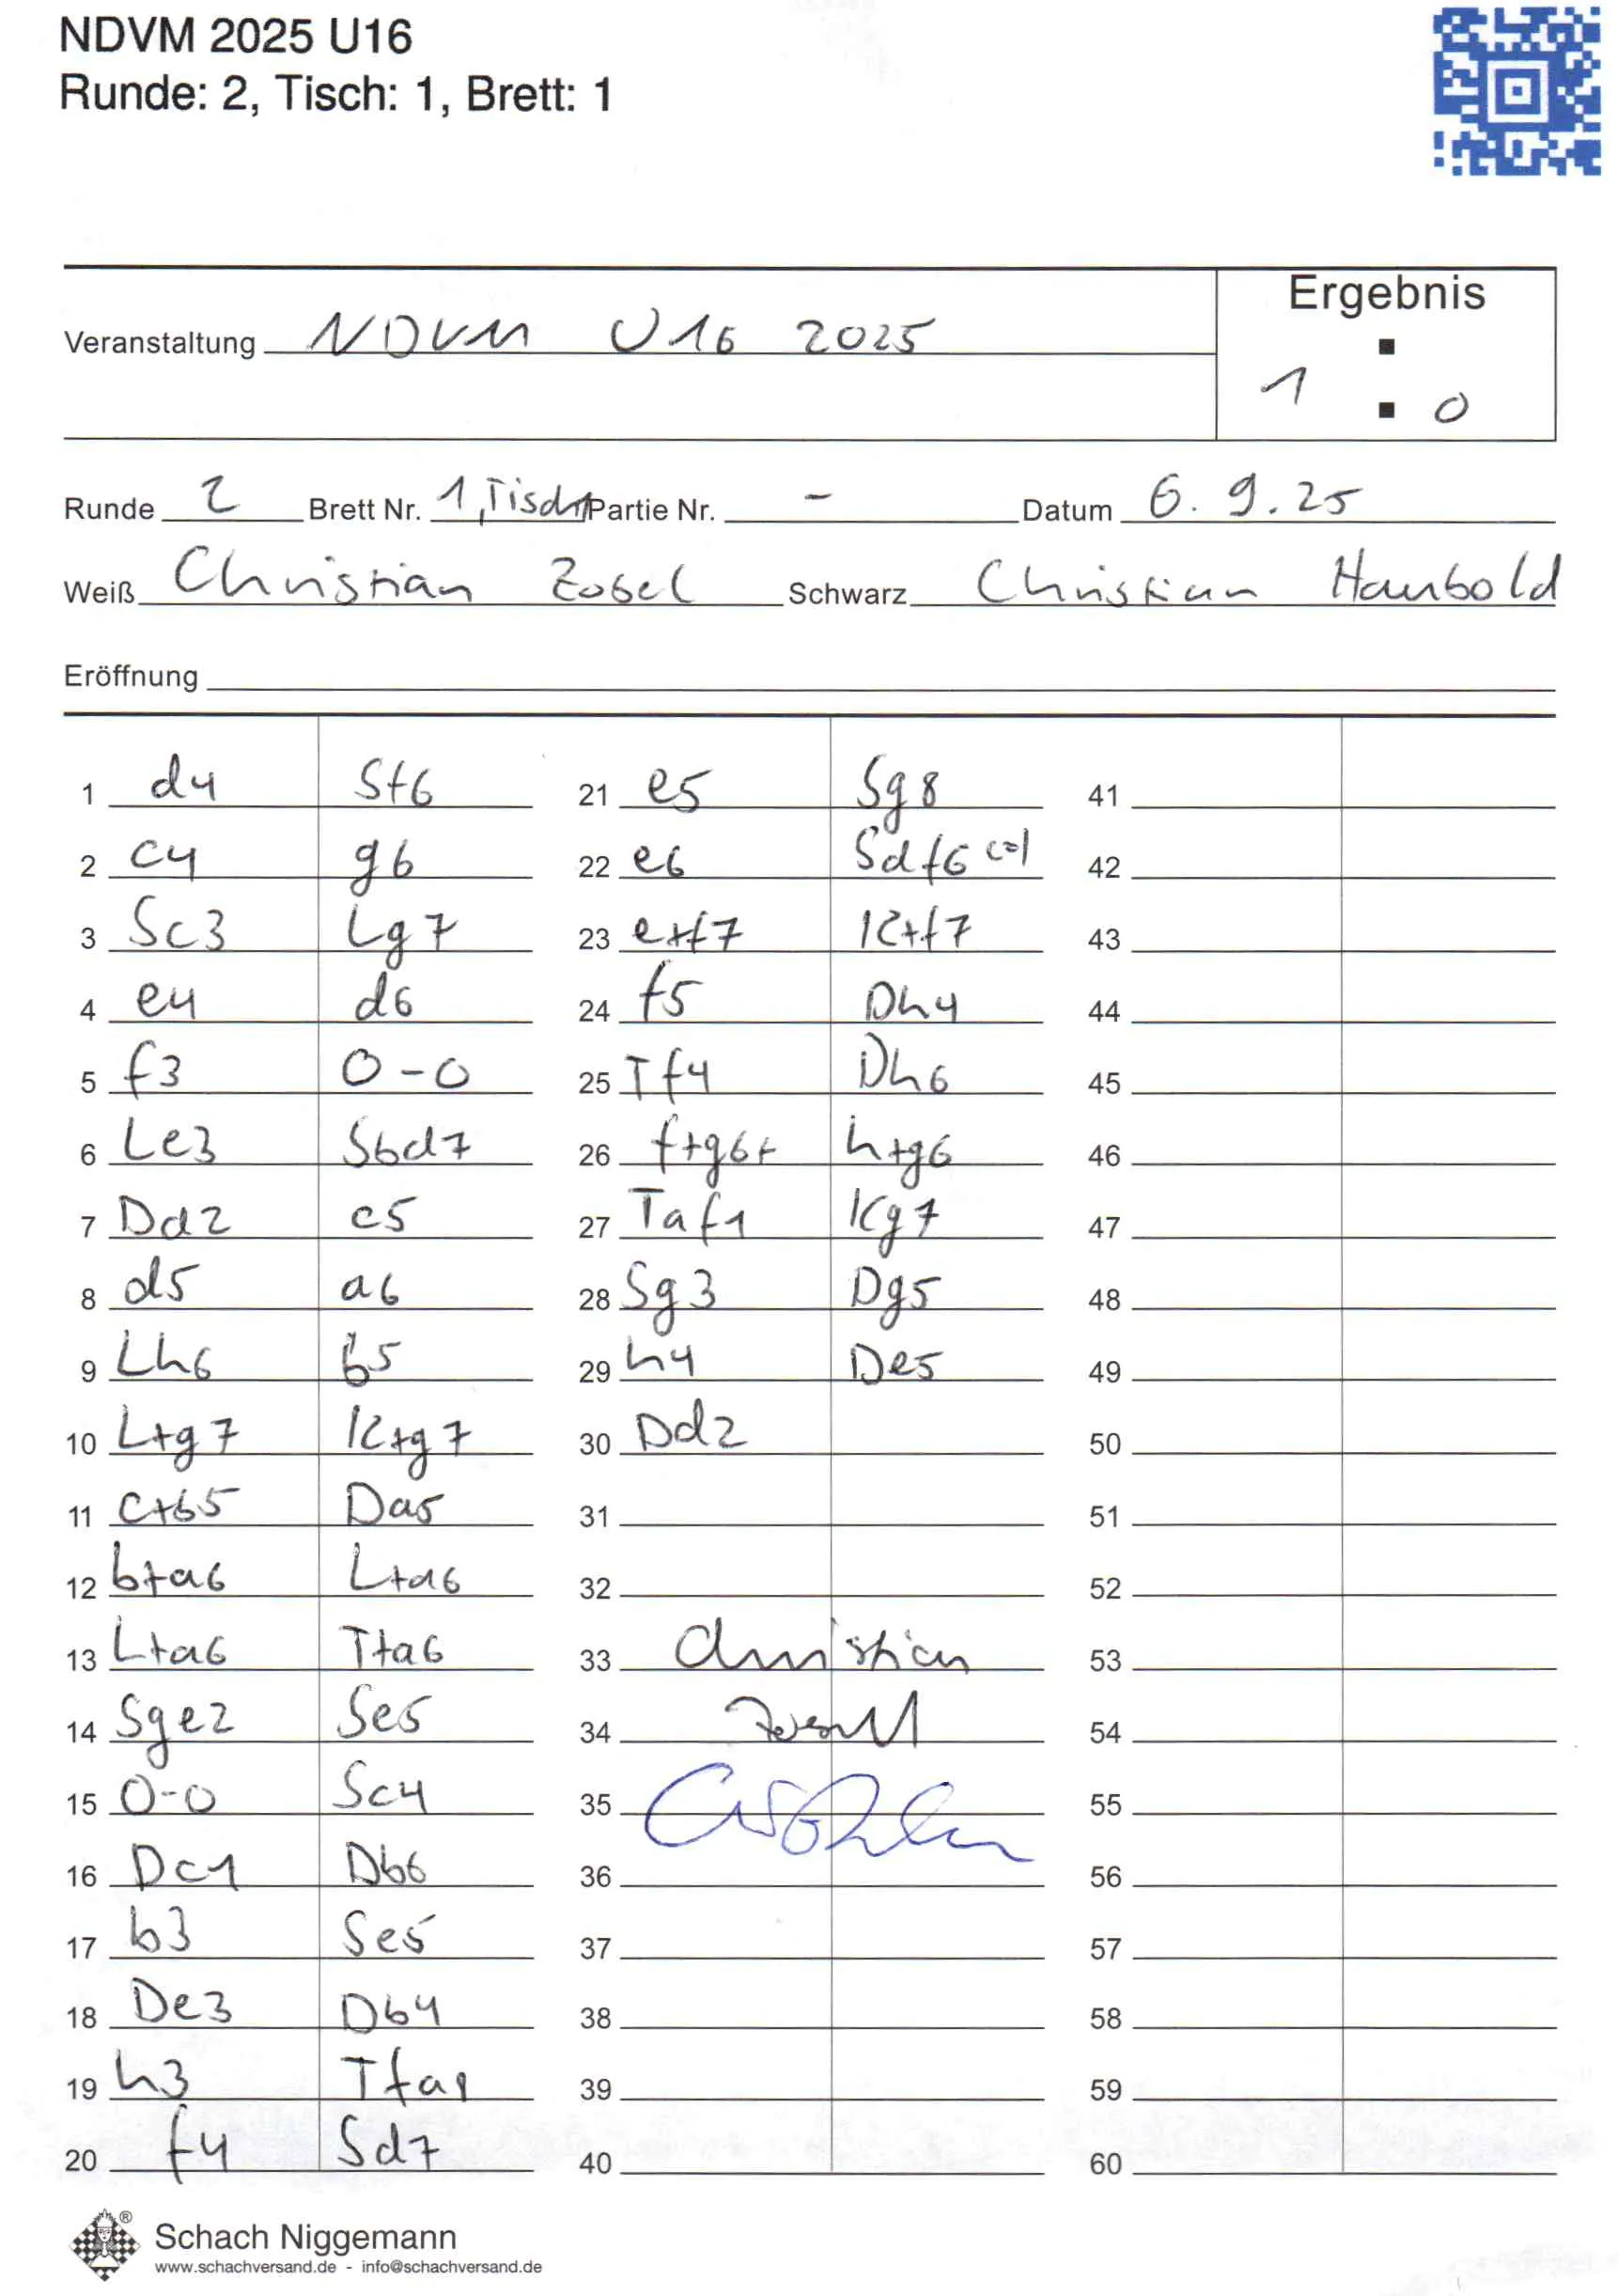 NDVM 2025 U16
Runde: 2, Tisch: 1, Brett: 1
Ergebnis
Veranstaltung NDVM U16 2025
1 : 0
Runde 2 Brett Nr. 1, Tisch 1 Partie Nr. - Datum 6.9.25
Weiß Christian Zobel Schwarz Christian Haubold
Eröffnung
1 d4 Sf6
2 c4 g6
3 Sc3 Lg7
4 e4 d6
5 f3 0-0
6 Le3 Sbd7
7 Dd2 c5
8 d5 a6
9 Lh6 b5
10 L+g7 K+g7
11 c+b5 Da5
12 b+a6 L+a6
13 L+a6 T+a6
14 Sge2 Se5
15 0-0 Sc4
16 Dc1 Db6
17 b3 Se5
18 De3 Db4
19 h3 Tfa8
20 f4 Sd7
21 e5 Sg8
22 e6 Sdf6 (=)
23 e+f7 K+f7
24 f5 Dh4
25 Tf4 Dh6
26 f+g6+ h+g6
27 Taf1 Kg7
28 Sg3 Dg5
29 h4 De5
30 Dd2
31
32
33 Christian
34
35
36
37
38
39
40
41
42
43
44
45
46
47
48
49
50
51
52
53
54
55
56
57
58
59
60
Schach Niggemann
www.schachversand.de - info@schachversand.de